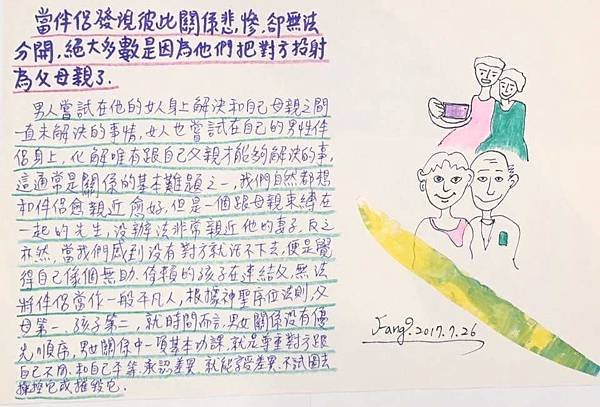 當伴侶發現彼此關係悲慘,卻無法
分開,絕大多數是因為他們把對方投射
為父母親了.
男人嘗試在他的女人身上解決和自己母親之間
一直未解決的事情,女人也嘗試在自己的男性伴
侶身上,化解唯有跟自己父親才能夠解決的事,
這通常是關係的基本難題之一,我們自然都想
和伴侶愈親近愈好,但是一個跟母親束縛在
一起的先生,沒辦法非常親近他的妻子,反之
亦然,當我們感到沒有對方就活不下去,便是覺
得自己像個無助、倚賴的孩子在連結父,無法
將伴侶當作一般平凡人,根據神聖序位法則,父
母第一、孩子第二,就時間而言,男女關係沒有優
先順序,男女關係中一項基本功課,就是尊重對方跟
自己不同、和自己平等、承認差異,就能享受差異,不試圖去
操控它或摧毀它.
Fang.2017.7.26